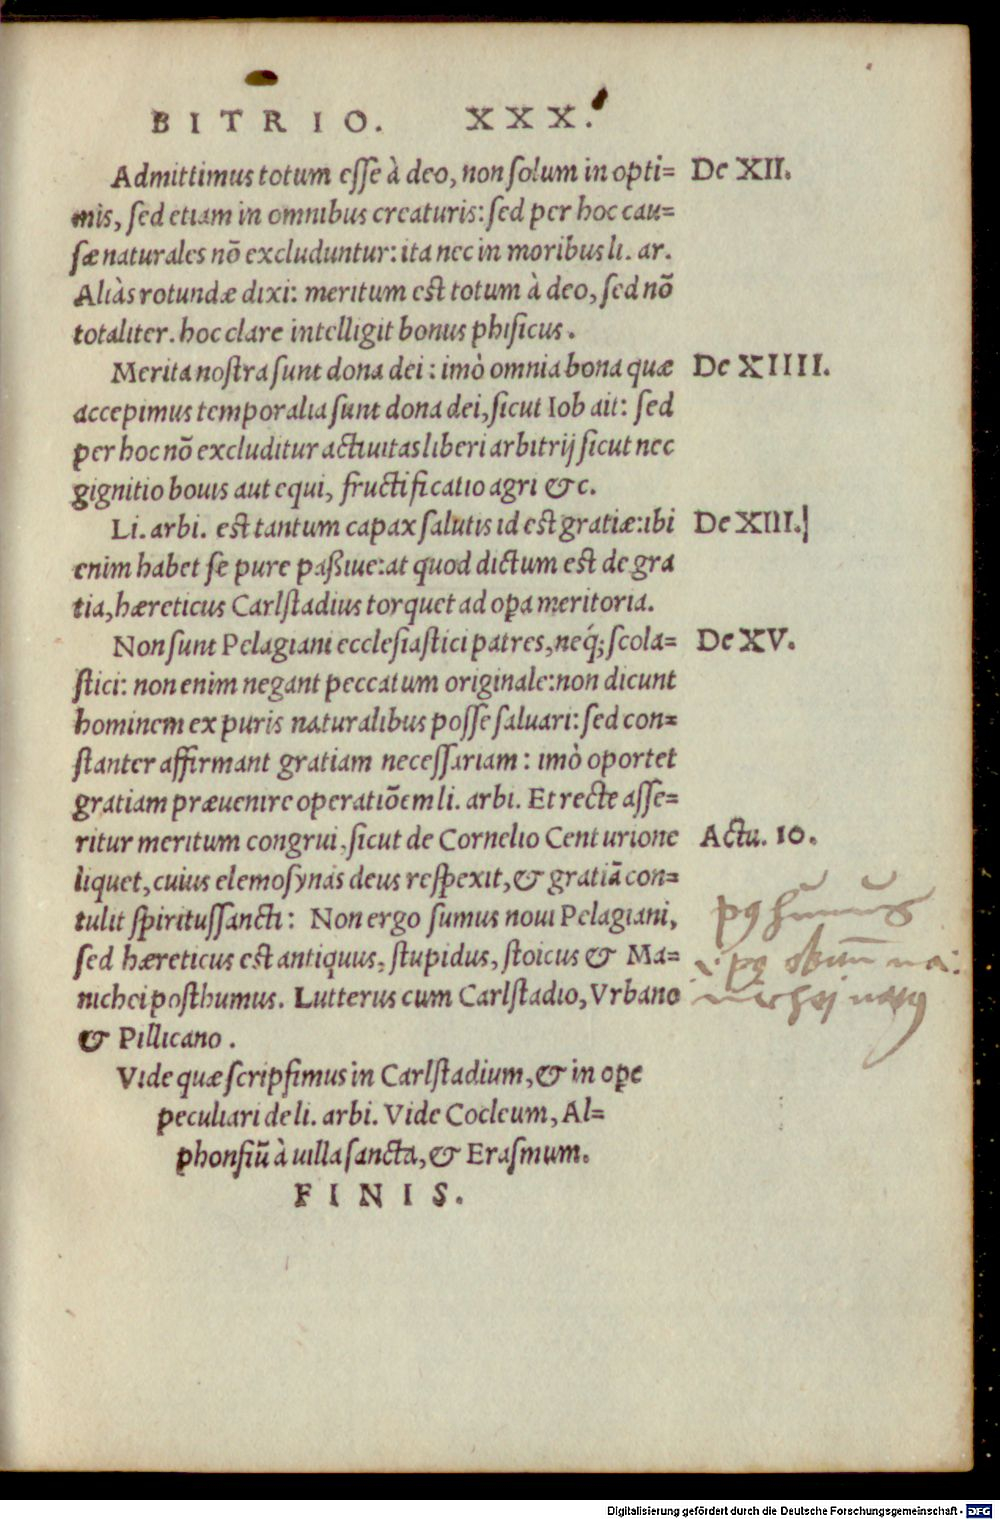 BITRIO. XXX.
Admittimus totum esse à deo, non solum in opti= De XII.
mis, sed etiam in omnibus creaturis: sed per hoc cau=
sæ naturales nõ excluduntur: ita nec in moribus li. ar.
Aliàs rotundæ dixi: meritum est totum à deo, sed nõ
totaliter. hoc clare intelligit bonus phisicus.
Merita nostra sunt dona dei: imò omnia bona quæ De XIIII.
accepimus temporalia sunt dona dei, sicut Iob ait: sed
per hoc nõ excluditur actiuitas liberi arbitrij sicut nec
gignitio bouis aut equi, fructificatio agri &c.
Li. arbi. est tantum capax salutis id est gratiæ: ibi De XIII.
enim habet se pure paßiue: at quod dictum est de gra
tia, hæreticus Carlstadius torquet ad oꝑa meritoria.
Non sunt Pelagiani ecclesiastici patres, neq́; scola= De XV.
stici: non enim negant peccatum originale: non dicunt
hominem ex puris naturalibus posse saluari: sed con=
stanter affirmant gratiam necessariam: imò oportet
gratiam præuenire operatiõem li. arbi. Et recte asse=
ritur meritum congrui, sicut de Cornelio Centurione Actu. 10.
liquet, cuius elemosynas deus respexit, & gratiã con=
tulit spiritussancti: Non ergo sumus noui Pelagiani,
sed hæreticus est antiquus, stupidus, stoicus & Ma=
nichei posthumus. Lutterus cum Carlstadio, Vrbano
& Pillicano.
Vide quæ scripsimus in Carlstadium, & in oꝑe
peculiari de li. arbi. Vide Cocleum, Al=
phonsiũ à uilla sancta, & Erasmum.
FINIS.
Digitalisierung gefördert durch die Deutsche Forschungsgemeinschaft - DFG